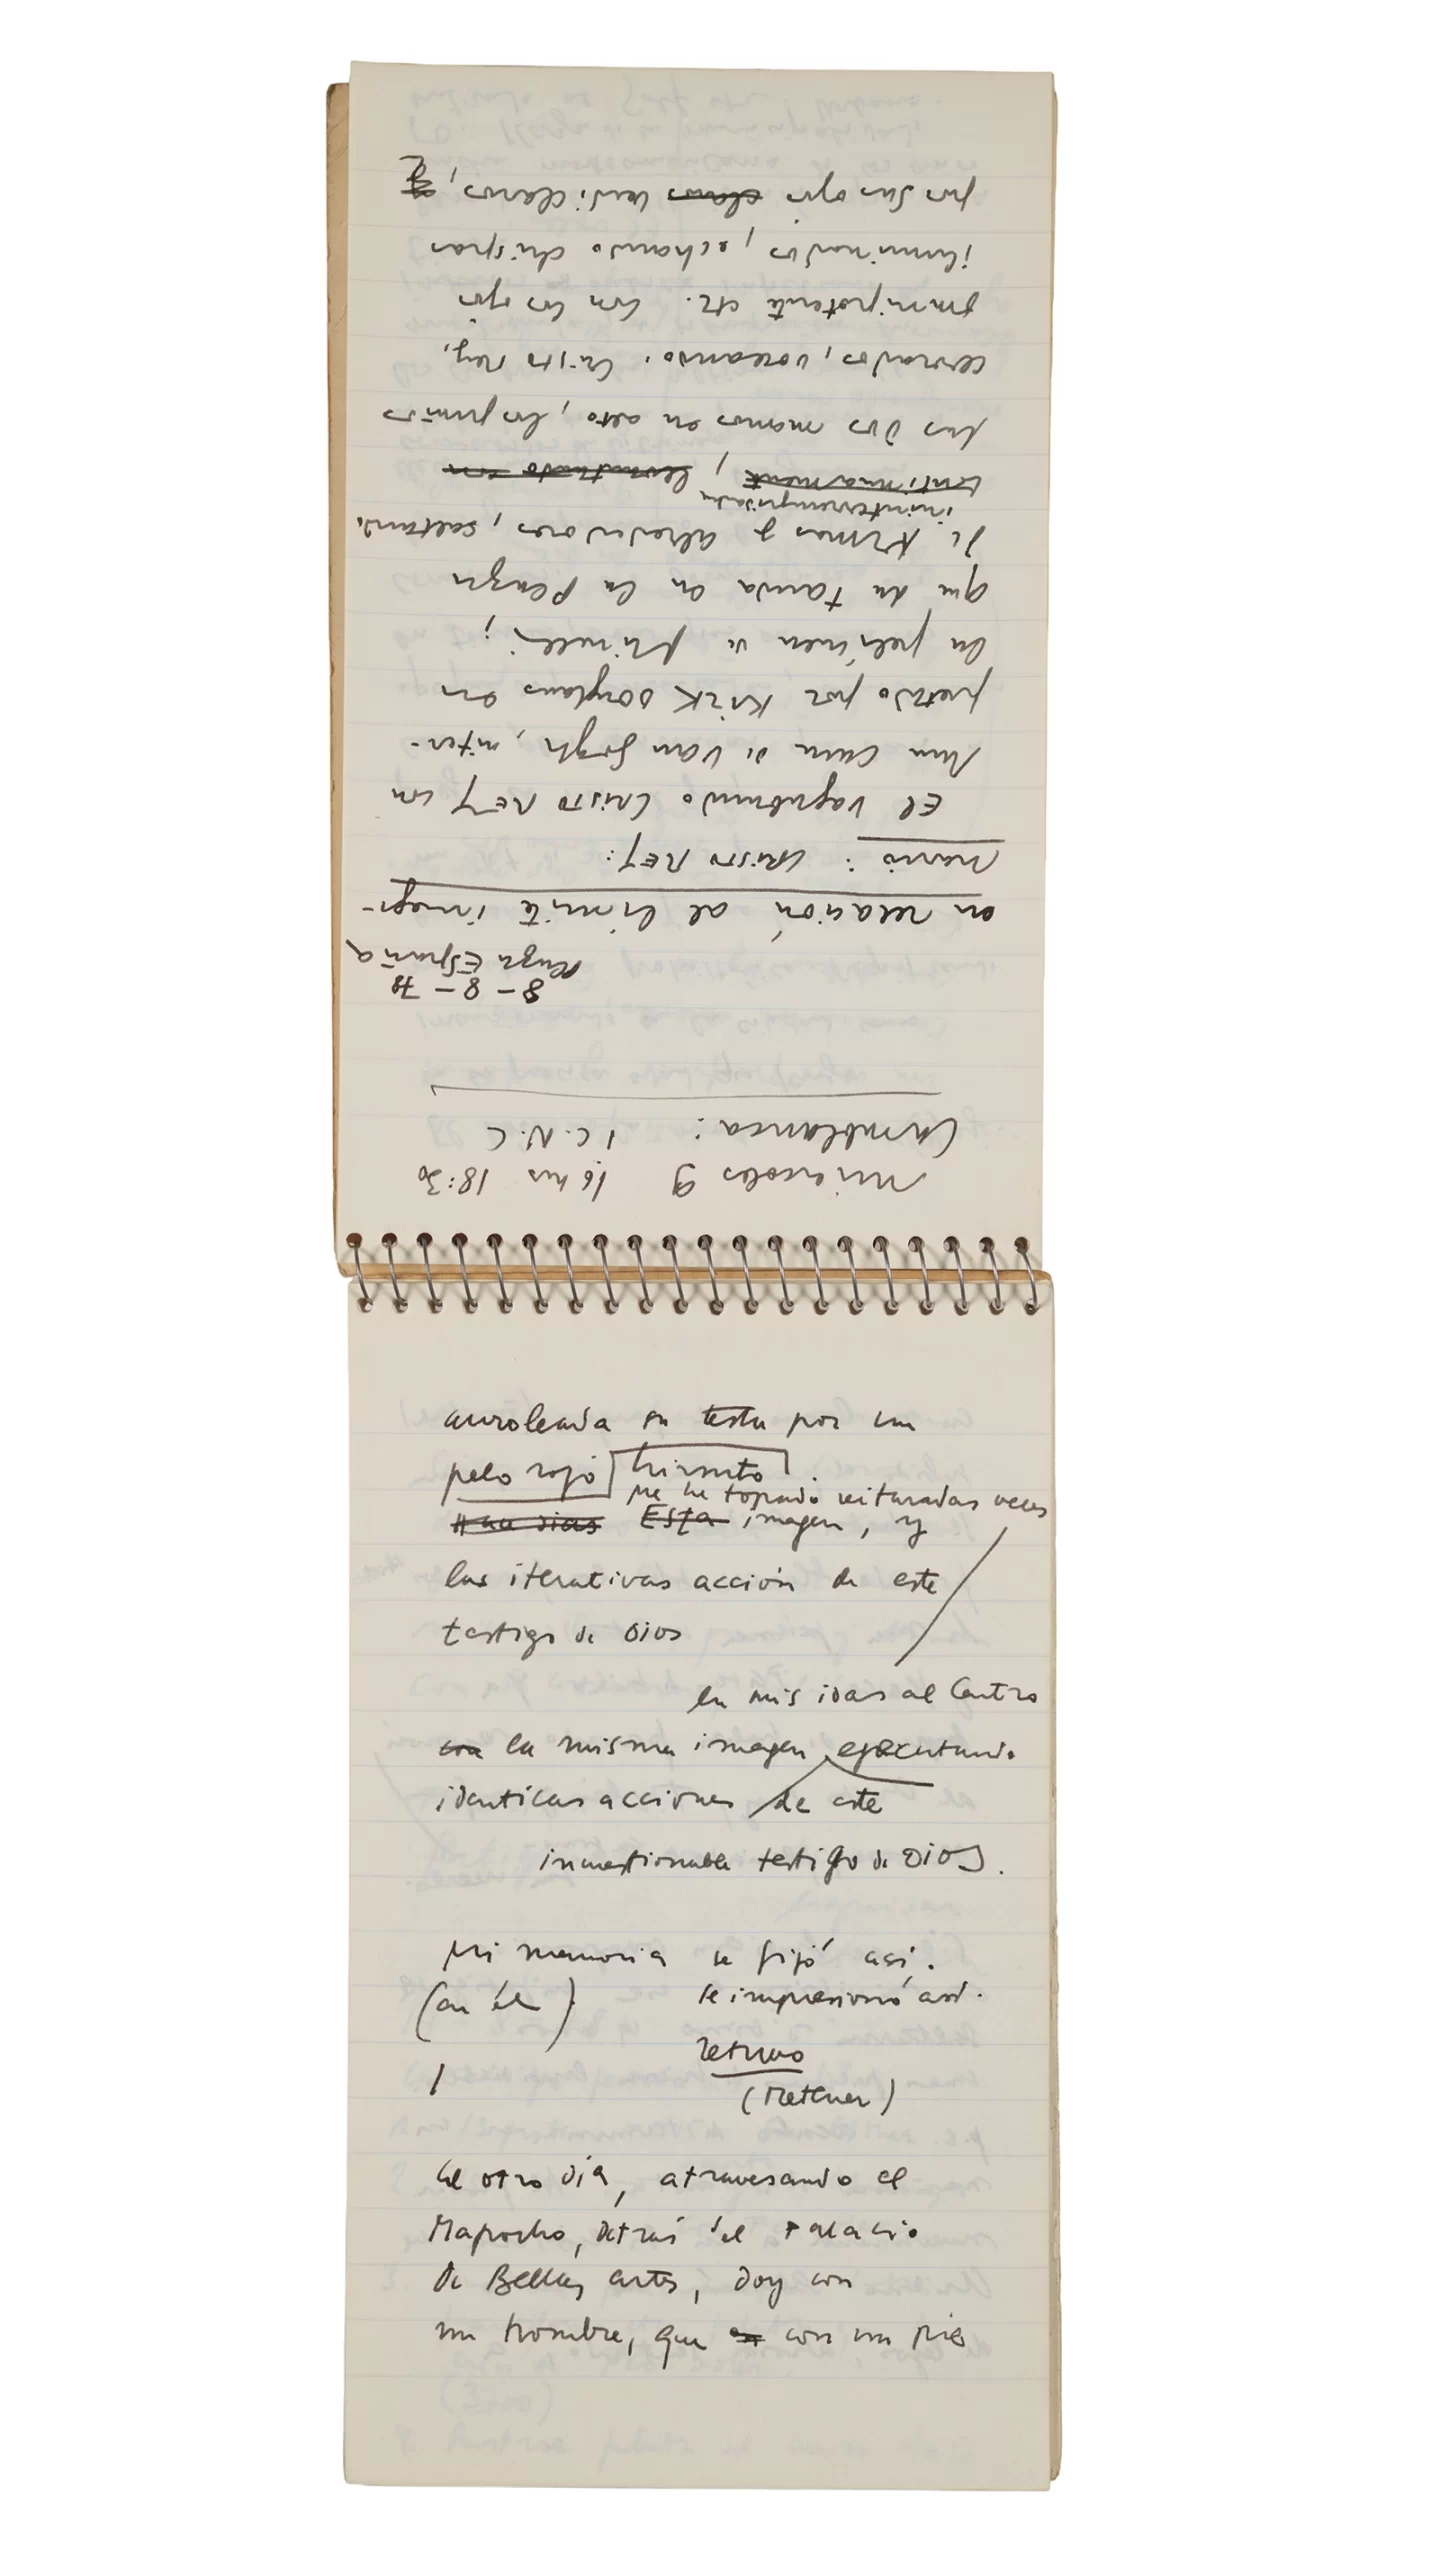 Miercoles 9 16 hrs 18:30
Casablanca: 1 C.N.C
8-8-78
Plaza España
en relación al límite imagi-
nario: CRISTO REY:
El vagabundo CRISTO REY con
una cara de Van Gogh, inter-
pretado por Kirk Douglas en
la película de Minelli;
que da tanda en la Plaza
de Armas y alrededores, saltando
ininterrumpidam
continuamente, levantando con
sus dos manos en alto, los puños
cerrados, voceando: Cristo Rey,
omnipotente etc. con los ojos
iluminados, echando chispas
por sus ojos claros verdi claros, q
q
auroleada su testa por un
pelo rojo hirsuto.
me he topado reiteradas veces
Hace dias Esta imagen, y
las iterativas acción de este
testigo de Dios
en mis idas al Centro
con la misma imagen ejecutando
identicas acciones de este
incuestionable testigo de DIOS.
Mi memoria se fijó así.
(en él) se impresionó así.
retuvo
(Retener)
El otro día, atravesando el
Mapocho, detrás del Palacio
de Bellas Artes, doy con
un hombre, que en con un pie